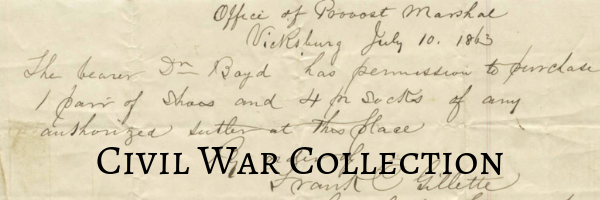 Office of Provost Marshal
Vicksburg July 10. 1863
The bearer Dr Boyd has permission to purchase
1 pair of Shoes and 4 pr Socks of any
authorized sutler at this place
Civil War Collection
Frank C Gillette